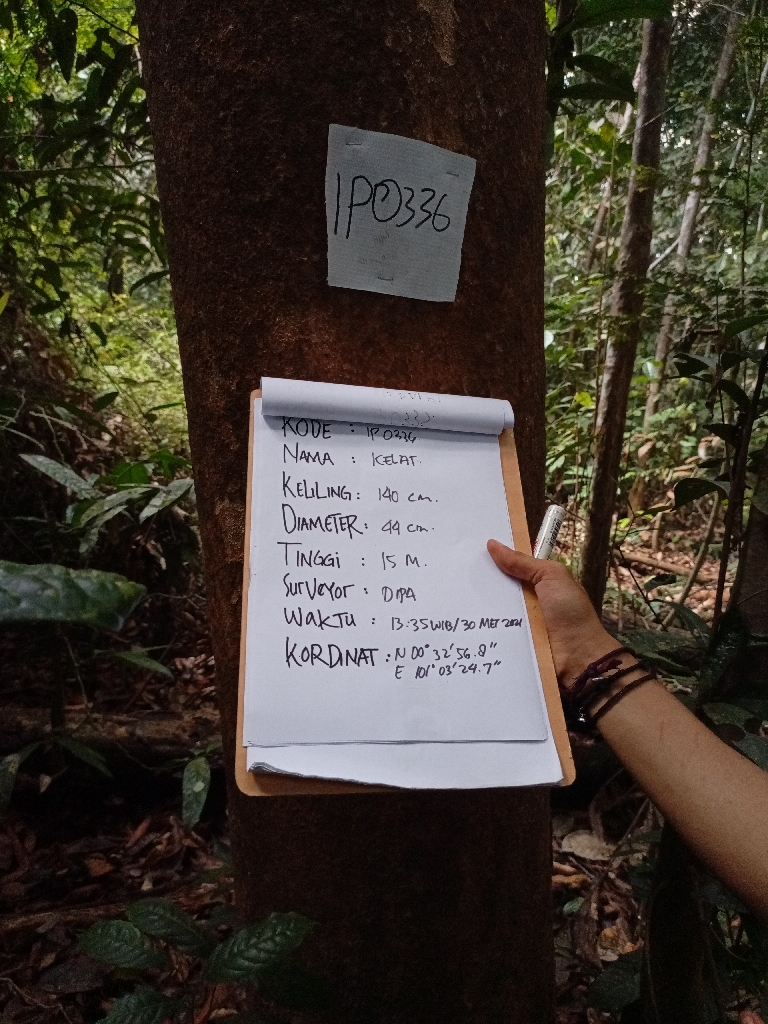 IP0336
KODE : IP0336
NAMA : KELAT.
KELILING : 140 cm.
DIAMETER : 44 cm.
TINGGI : 15 M.
SURVEYOR : DIPA
WAKTU : 13:35 WIB/30 MEI 2021
KORDINAT : N 00° 32' 56.8"
E 101° 03' 24.7"